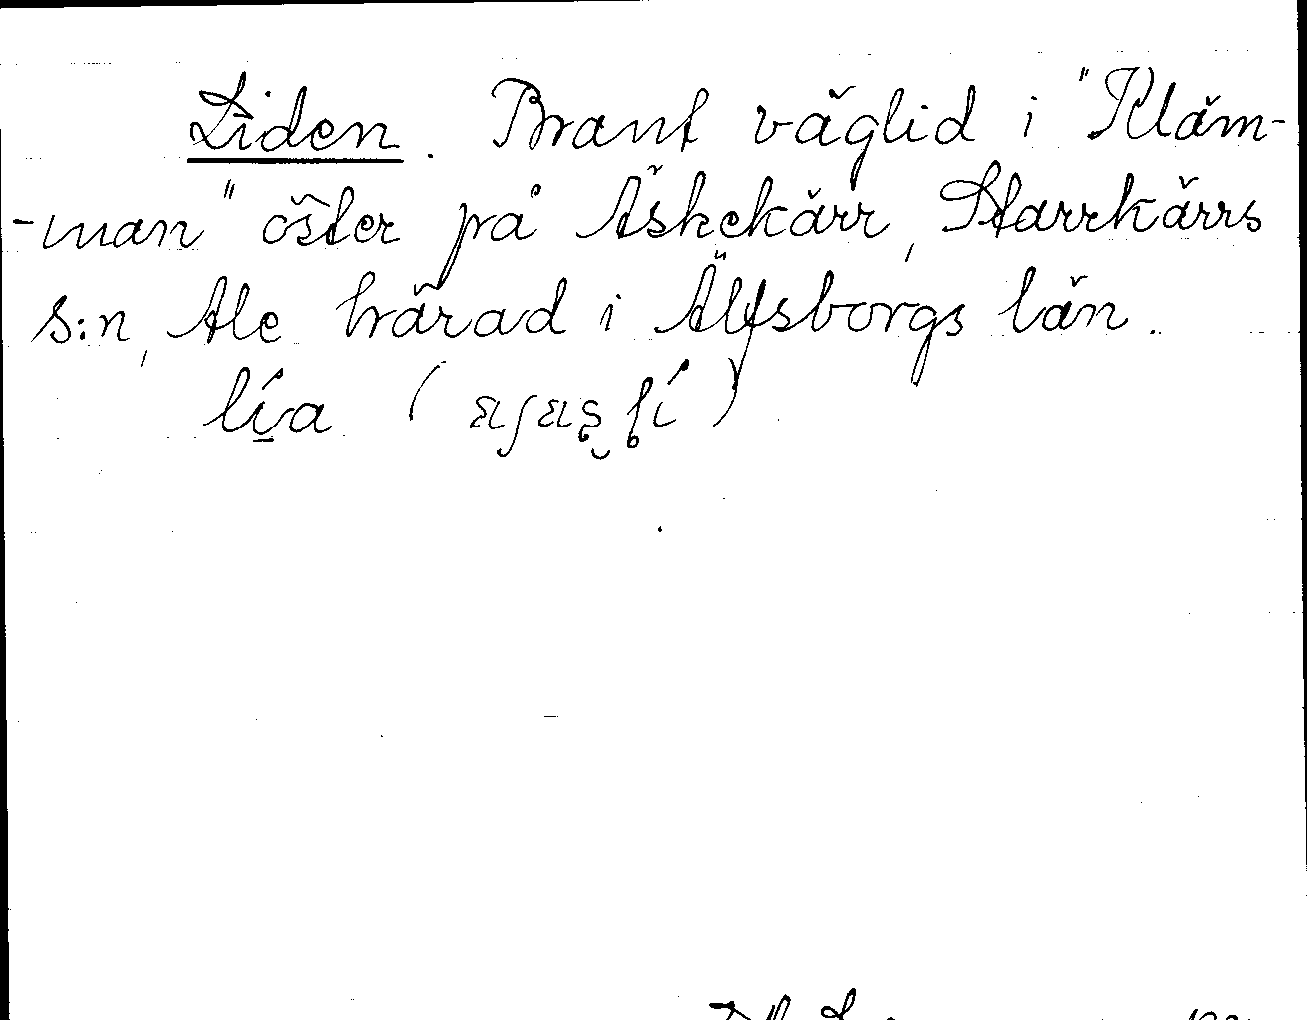 Liden. Brant väglid i "Kläm-
-man" öster på Äskekärr, Starrkärrs
s:n, Ale härad i Älfsborgs län.
lía